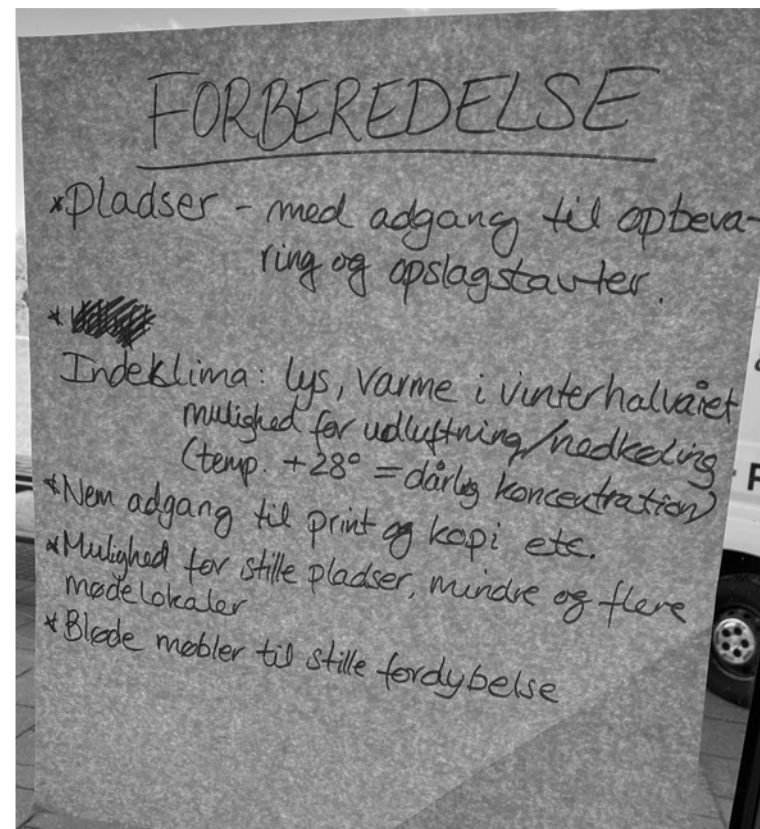 FORBEREDELSE
*Pladser - med adgang til opbeva-
ring og opslagstavler.
*
Indeklima: lys, varme i vinterhalvåret
mulighed for udluftning/nedkøling
(temp. +28° = dårlig koncentration)
*Nem adgang til print og kopi etc.
*Mulighed for stille pladser, mindre og flere
mødelokaler
*Bløde møbler til stille fordybelse